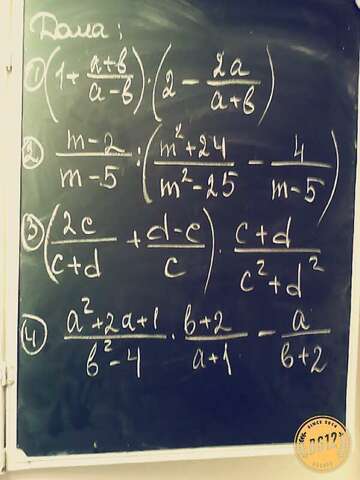 Дома:
① (1 + \frac{a+b}{a-b}) · (2 - \frac{2a}{a+b})
② \frac{m-2}{m-5} : (\frac{m²+24}{m²-25} - \frac{4}{m-5})
③ (\frac{2c}{c+d} + \frac{d-c}{c}) · \frac{c+d}{c²+d²}
④ \frac{a²+2a+1}{b²-4} · \frac{b+2}{a+1} - \frac{a}{b+2}
SINCE 2014